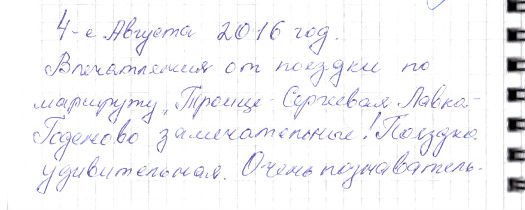 4-е Августа 2016 год.
Впечатления от поездки по
маршруту „Троице-Сергиевая Лавра-
Годеново замечательные! Поездка
удивительная. Очень познаватель-